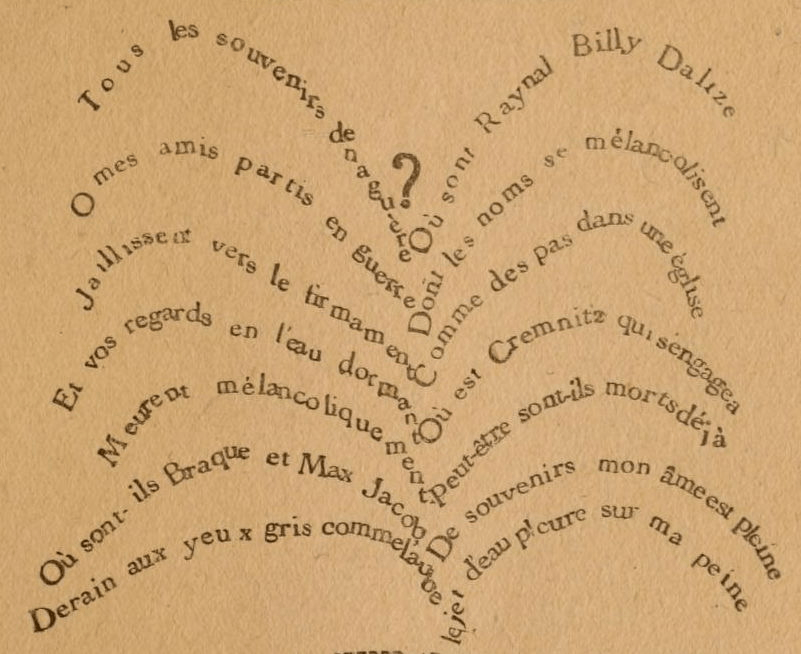 Tous les souvenirs de naguère
O mes amis partis en guerre
Jaillissent vers le firmament
Et vos regards en l'eau dormant
Meurent mélancoliquement
Où sont-ils Braque et Max Jacob
Derain aux yeux gris comme l'aube
?
Où sont Raynal Billy Dalize
Dont les noms se mélancolisent
Comme des pas dans une église
Où est Cremnitz qui s'engagea
Peut-être sont-ils morts déjà
De souvenirs mon âme est pleine
le jet d'eau pleure sur ma peine